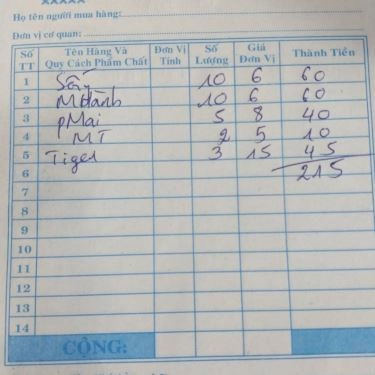 XXXXX
Họ tên người mua hàng:
Đơn vị cơ quan:
Số TT Tên Hàng Và Quy Cách Phẩm Chất Đơn Vị Tính Số Lượng Giá Đơn Vị Thành Tiền
1 10 6 60
2 Mđành 10 6 60
3 pMai 5 8 40
4 MT 2 5 10
5 Tiger 3 15 45
6 215
7
8
9
10
11
12
13
14
CỘNG: